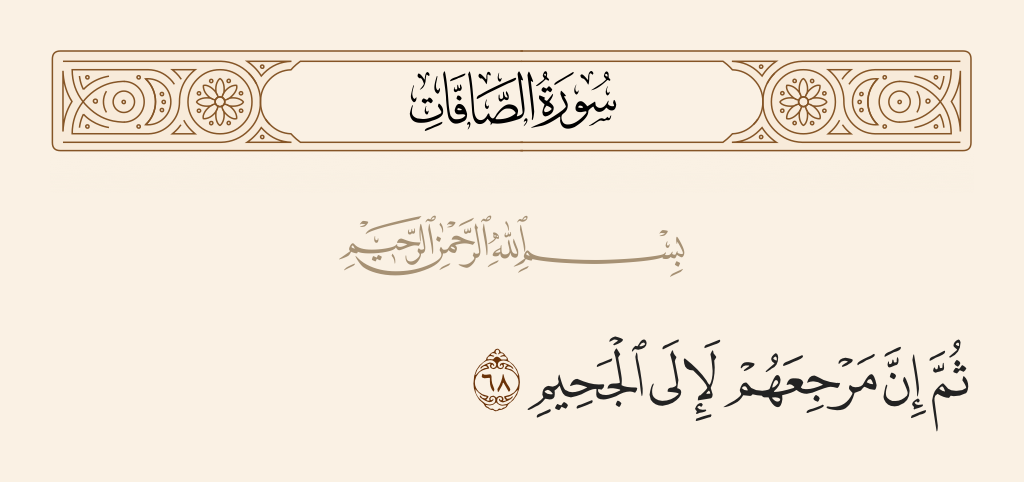 سُورَةُ الصَّافَّاتِ
بِسْمِ ٱللَّهِ ٱلرَّحْمَٰنِ ٱلرَّحِيمِ
ثُمَّ إِنَّ مَرْجِعَهُمْ لَإِلَى ٱلْجَحِيمِ ٦٨